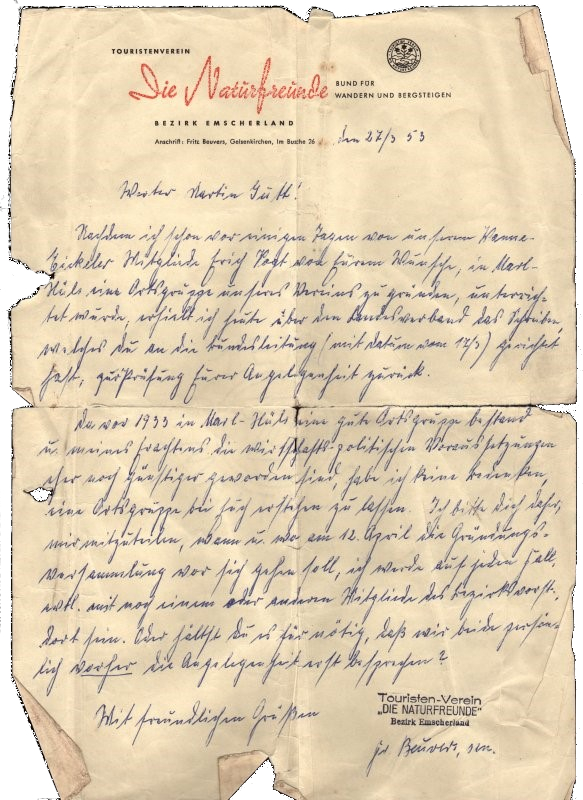 TOURISTENVEREIN
Die Naturfreunde
BUND FÜR
WANDERN UND BERGSTEIGEN
BEZIRK EMSCHERLAND
Anschrift: Fritz Beuvers, Gelsenkirchen, Im Busche 26
den 27/3 53
Werter Martin Gutt!
Nachdem ich schon vor einigen Tagen von unserem Wanne-
Eickeler Mitgliede Erich Vogt von Eurem Wunsche, in Marl-
Hüls eine Ortsgruppe unseres Vereins zu gründen, unterrich-
tet wurde, erhielt ich heute über den Landesverband das Schreiben,
welches Du an die Bundesleitung (mit Datum vom 17/3) gerichtet
hast, zur Prüfung Eurer Angelegenheit zurück.
Da vor 1933 in Marl-Hüls eine gute Ortsgruppe bestand
u. meines Erachtens die wirtschafts-politischen Voraussetzungen
eher noch günstiger geworden sind, habe ich keine Bedenken,
eine Ortsgruppe bei Euch erstehen zu lassen. Ich bitte Dich daher,
mir mitzuteilen, wann u. wo am 12. April die Gründungs-
versammlung vor sich gehen soll, ich werde auf jeden Fall,
evtl. mit noch einem oder anderen Mitgliede des Bezirksvorst.
dort sein. Oder hältst Du es für nötig, daß wir beide persön-
lich vorher die Angelegenheit erst besprechen?
Mit freundlichen Grüßen
Touristen-Verein
„DIE NATURFREUNDE"
Bezirk Emscherland
Beuvers, sen.